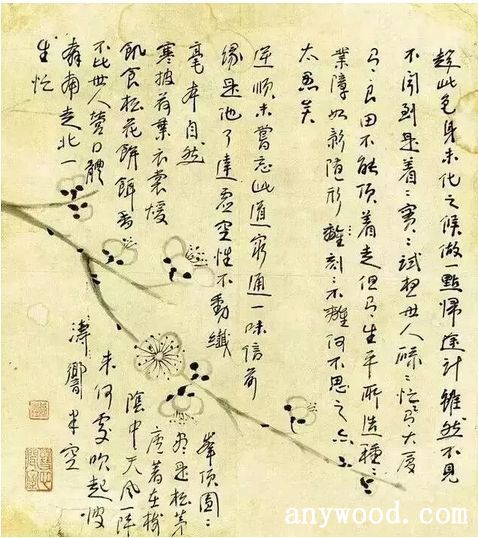 趁此色身未化之候做一點歸途計雖然不見
不聞到是着〻實〻試想世人碌〻忙〻爲大廈
爲良田不能頂着走但爲生平所造種〻
業障如影隨形刻離何不思之亦
太愚矣
逆順未嘗忘此道窮通一味信前
緣是他了達虛空性不動纖
毫本自然
寒披荷葉衣裳煖
飢食松花餅餌香
不比世人營口體
奔南走北一
生忙
峯頂團〻
盡是松茅
廬着在樹
陰中天風一陣
來何處吹起波
濤響半空
anywood.com